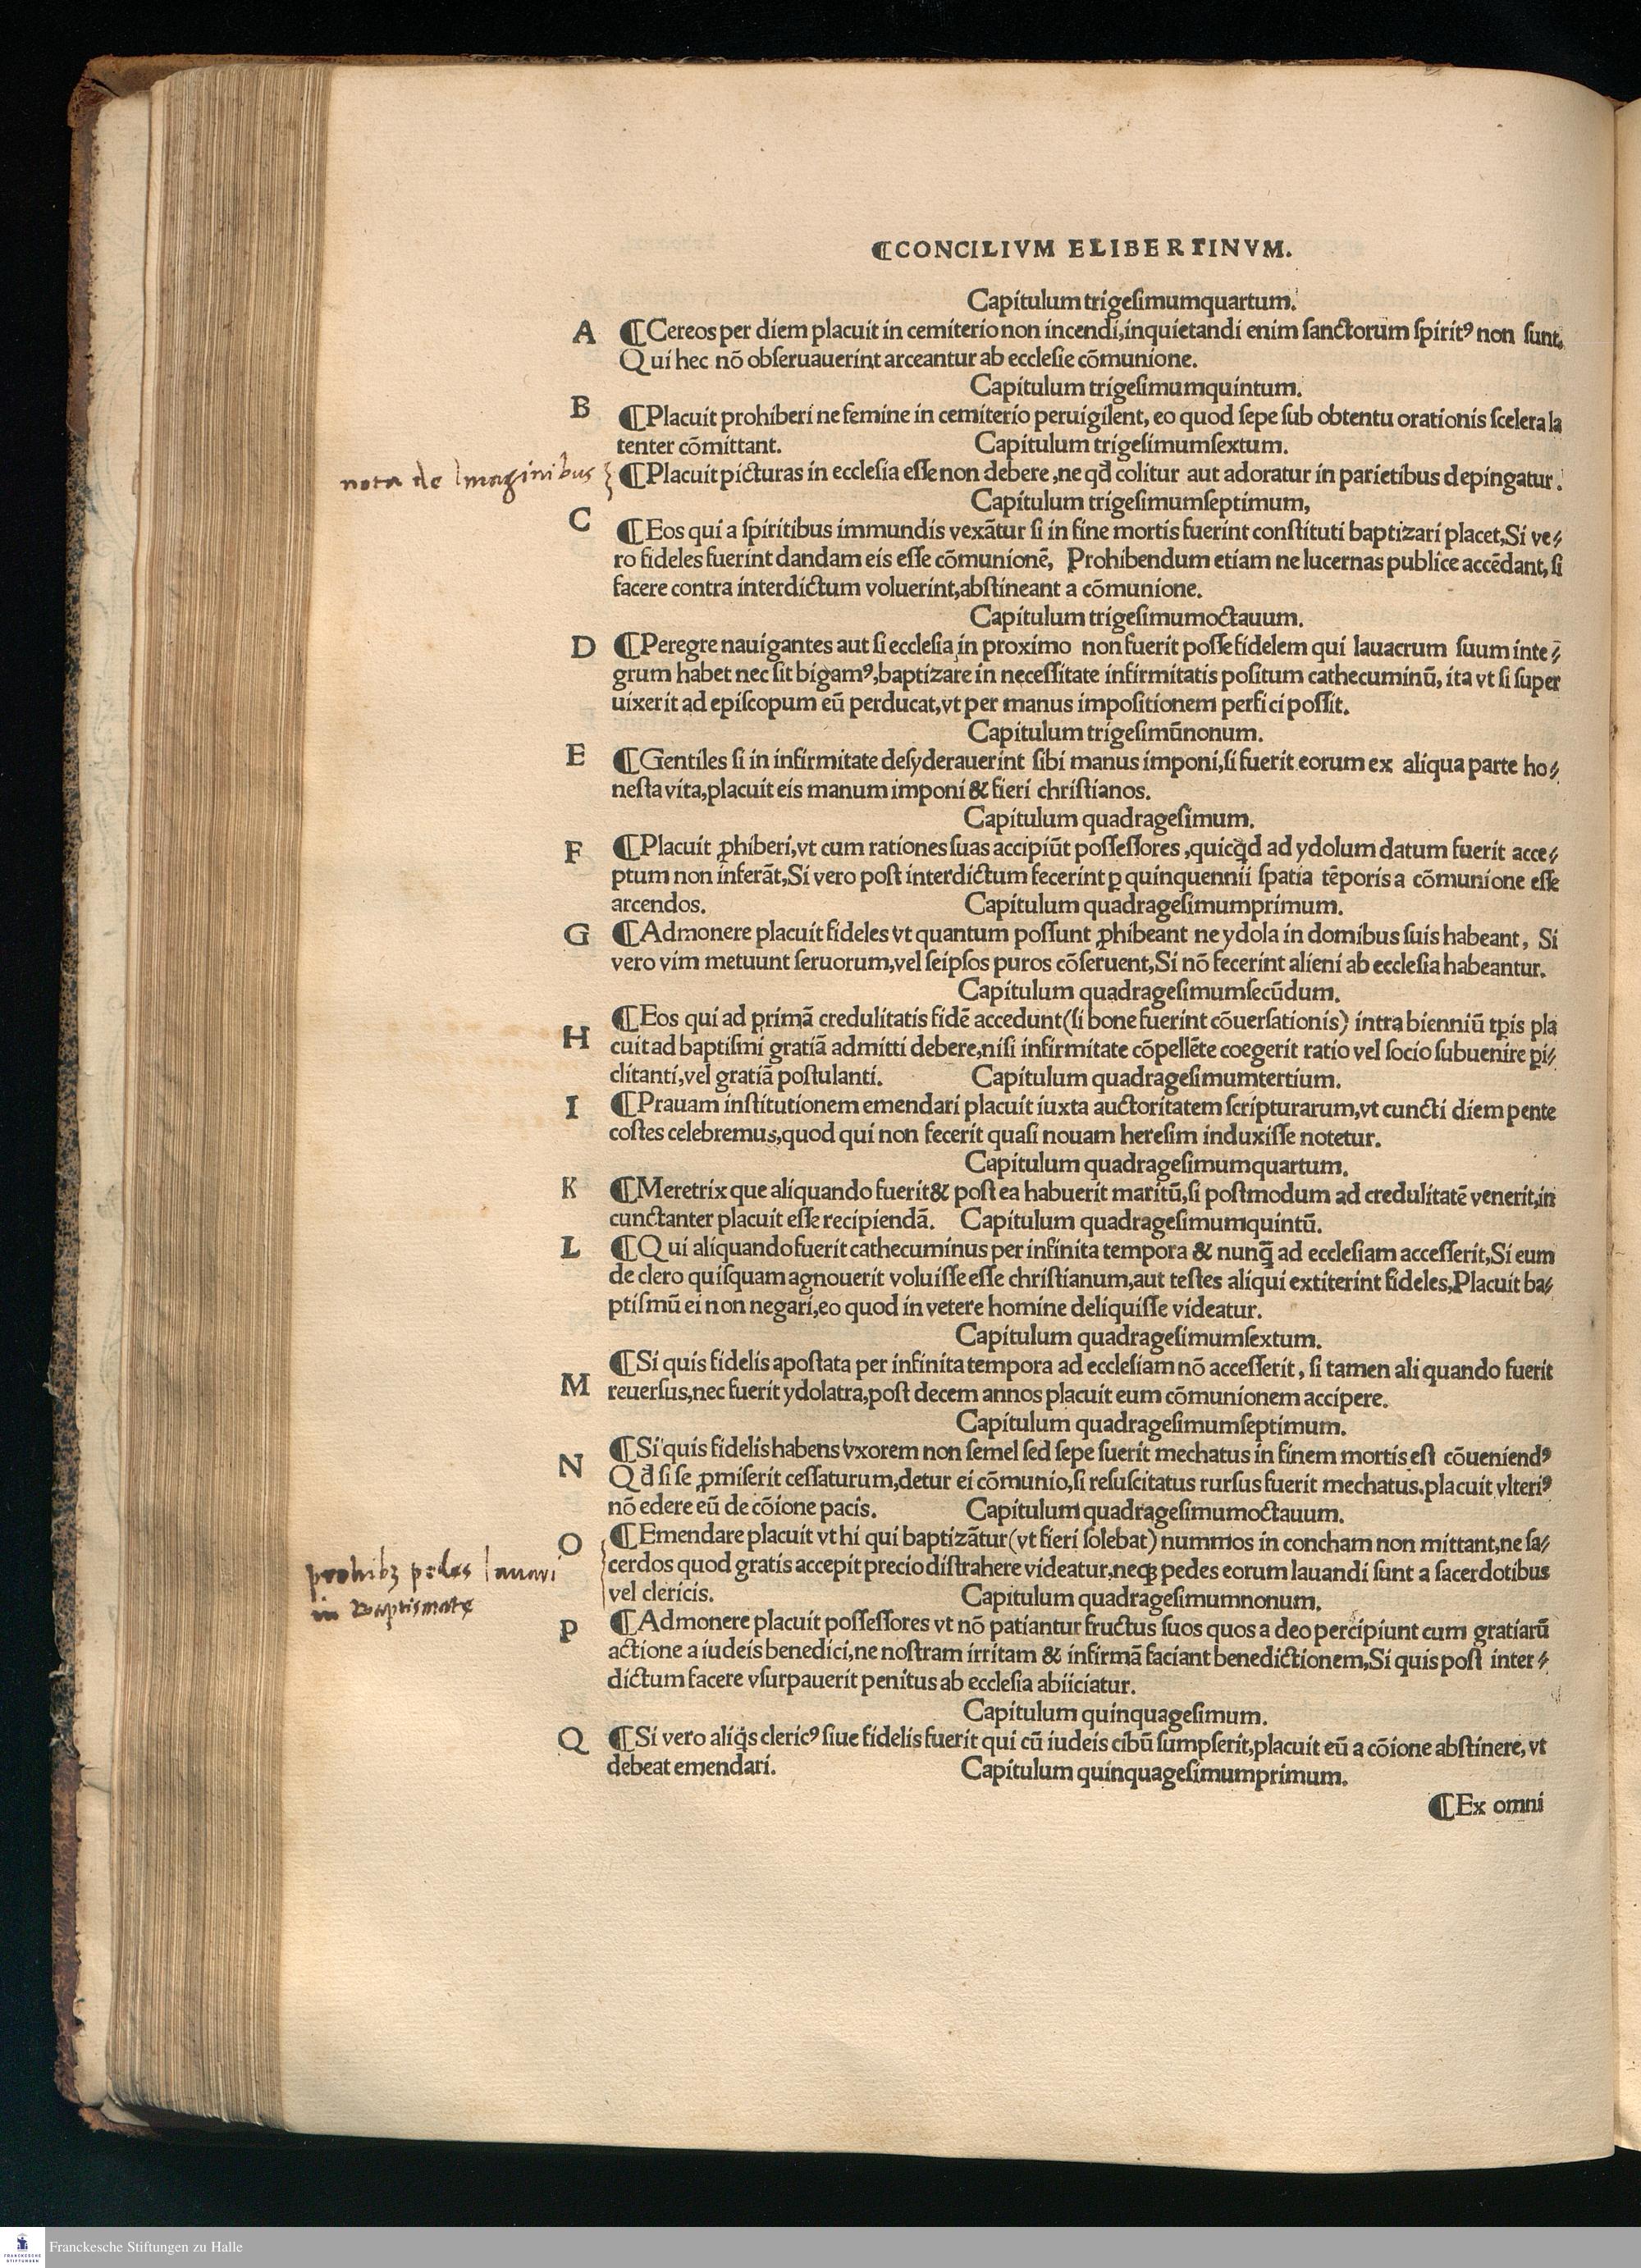 ¶CONCILIVM ELIBERTINVM.
Capitulum trigesimumquartum.
A ¶Cereos per diem placuit in cemiterio non incendi,inquietandi enim sanctorum spiritꝰ non sunt.
Qui hec nõ obseruauerint arceantur ab ecclesie cõmunione.
Capitulum trigesimumquintum.
B ¶Placuit prohiberi ne femine in cemiterio peruigilent, eo quod sepe sub obtentu orationis scelera la
tenter cõmittant. Capitulum trigesimumsextum.
nota de Imaginibus ¶Placuit picturas in ecclesia esse non debere,ne qđ colitur aut adoratur in parietibus depingatur.
Capitulum trigesimumseptimum,
C ¶Eos qui a spiritibus immundis vexãtur si in fine mortis fuerint constituti baptizari placet,Si ve⸗
ro fideles fuerint dandam eis esse cõmunionẽ, Prohibendum etiam ne lucernas publice accẽdant, si
facere contra interdictum voluerint,abstineant a cõmunione.
Capitulum trigesimumoctauum.
D ¶Peregre nauigantes aut si ecclesia in proximo non fuerit posse fidelem qui lauacrum suum inte⸗
grum habet nec sit bigamꝰ,baptizare in necessitate infirmitatis positum cathecuminũ, ita vt si super
uixerit ad episcopum eũ perducat,vt per manus impositionem perfici possit.
Capitulum trigesimũnonum.
E ¶Gentiles si in infirmitate desyderauerint sibi manus imponi,si fuerit eorum ex aliqua parte ho⸗
nesta vita,placuit eis manum imponi & fieri christianos.
Capitulum quadragesimum.
F ¶Placuit ꝓhiberi,vt cum rationes suas accipiũt possessores,quicqd ad ydolum datum fuerit acce⸗
ptum non inferãt,Si vero post interdictum fecerint ꝑ quinquennii spatia tẽporis a cõmunione esse
arcendos. Capitulum quadragesimumprimum.
G ¶Admonere placuit fideles vt quantum possunt ꝓhibeant ne ydola in domibus suis habeant, Si
vero vim metuunt seruorum,vel seipsos puros cõseruent,Si nõ fecerint alieni ab ecclesia habeantur.
Capitulum quadragesimumsecũdum.
H ¶Eos qui ad primã credulitatis fidẽ accedunt(si bone fuerint cõuersationis) intra bienniũ tꝑis pla
cuit ad baptismi gratiã admitti debere,nisi infirmitate cõpellẽte coegerit ratio vel socio subuenire ꝑi⸗
clitanti,vel gratiã postulanti. Capitulum quadragesimumtertium.
I ¶Prauam institutionem emendari placuit iuxta auctoritatem scripturarum,vt cuncti diem pente
costes celebremus,quod qui non fecerit quasi nouam heresim induxisse notetur.
Capitulum quadragesimumquartum.
K ¶Meretrix que aliquando fuerit & post ea habuerit maritũ,si postmodum ad credulitatẽ venerit,in
cunctanter placuit esse recipiendã. Capitulum quadragesimumquintũ.
L ¶Qui aliquando fuerit cathecuminus per infinita tempora & nunꝗ̃ ad ecclesiam accesserit,Si eum
de clero quisquam agnouerit voluisse esse christianum,aut testes aliqui extiterint fideles,Placuit ba⸗
ptismũ ei non negari,eo quod in vetere homine deliquisse videatur.
Capitulum quadragesimumsextum.
M ¶Si quis fidelis apostata per infinita tempora ad ecclesiam nõ accesserit, si tamen ali quando fuerit
reuersus,nec fuerit ydolatra,post decem annos placuit eum cõmunionem accipere.
Capitulum quadragesimumseptimum.
N ¶Si quis fidelis habens vxorem non semel sed sepe fuerit mechatus in finem mortis est cõueniendꝰ
Qđ si se ꝓmiserit cessaturum,detur ei cõmunio,si resuscitatus rursus fuerit mechatus.placuit vlteriꝰ
nõ edere eũ de cõione pacis. Capitulum quadragesimumoctauum.
O ¶Emendare placuit vt hi qui baptizãtur(vt fieri solebat) nummos in concham non mittant,ne sa⸗
cerdos quod gratis accepit precio distrahere videatur.neqꝫ pedes eorum lauandi sunt a sacerdotibus
vel clericis. Capitulum quadragesimumnonum.
prohibꝫ pedes lauari
in Baptismate
P ¶Admonere placuit possessores vt nõ patiantur fructus suos quos a deo percipiunt cum gratiarũ
actione a iudeis benedici,ne nostram irritam & infirmã faciant benedictionem,Si quis post inter⸗
dictum facere vsurpauerit penitus ab ecclesia abiiciatur.
Capitulum quinquagesimum.
Q ¶Si vero aliqs clericꝰ siue fidelis fuerit qui cũ iudeis cibũ sumpserit,placuit eũ a cõione abstinere, vt
debeat emendari. Capitulum quinquagesimumprimum.
¶Ex omni
FRANCKESCHE STIFTUNGEN
Franckesche Stiftungen zu Halle